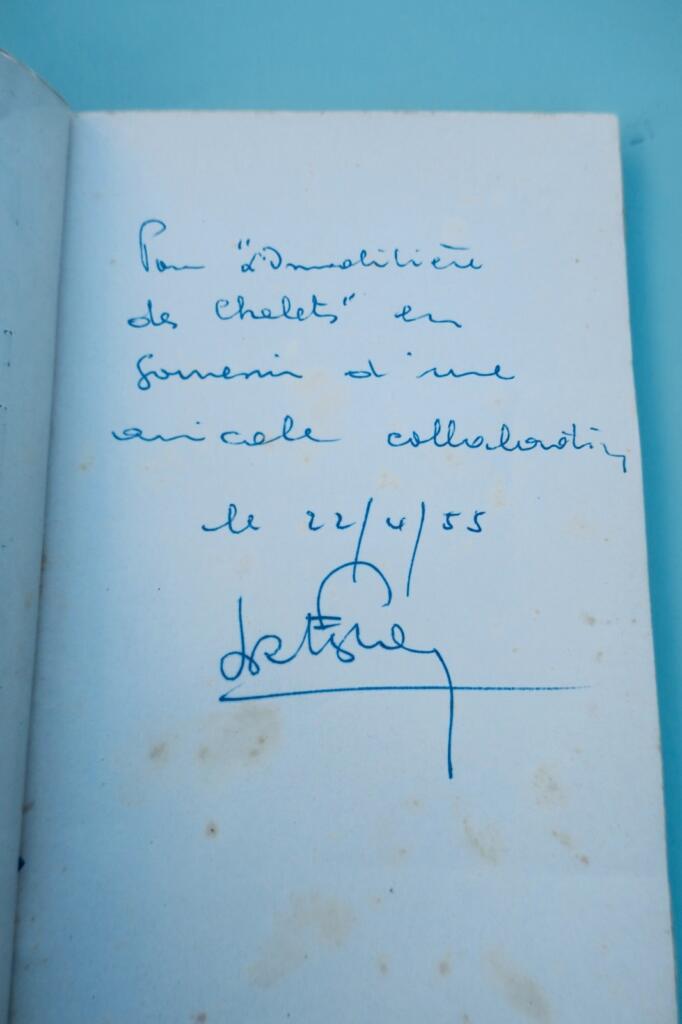 Pour "L'Immobilière
des Chalets" en
souvenir d'une
amicale collaboration
le 22/4/55